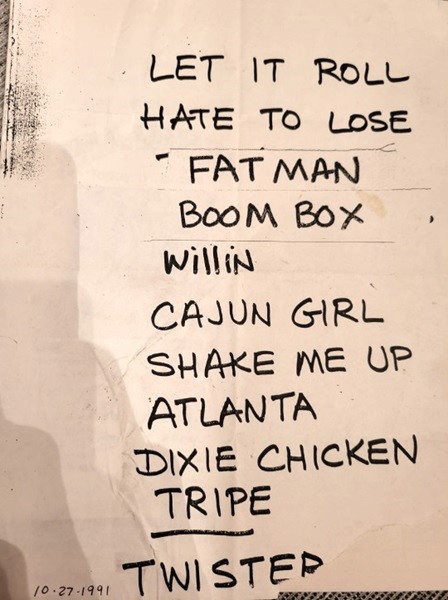 LET IT ROLL
HATE TO LOSE
- FAT MAN
BOOM BOX
WilliN
CAJUN GIRL
SHAKE ME UP
ATLANTA
DIXIE CHICKEN
TRIPE
TWISTED
10·27·1991